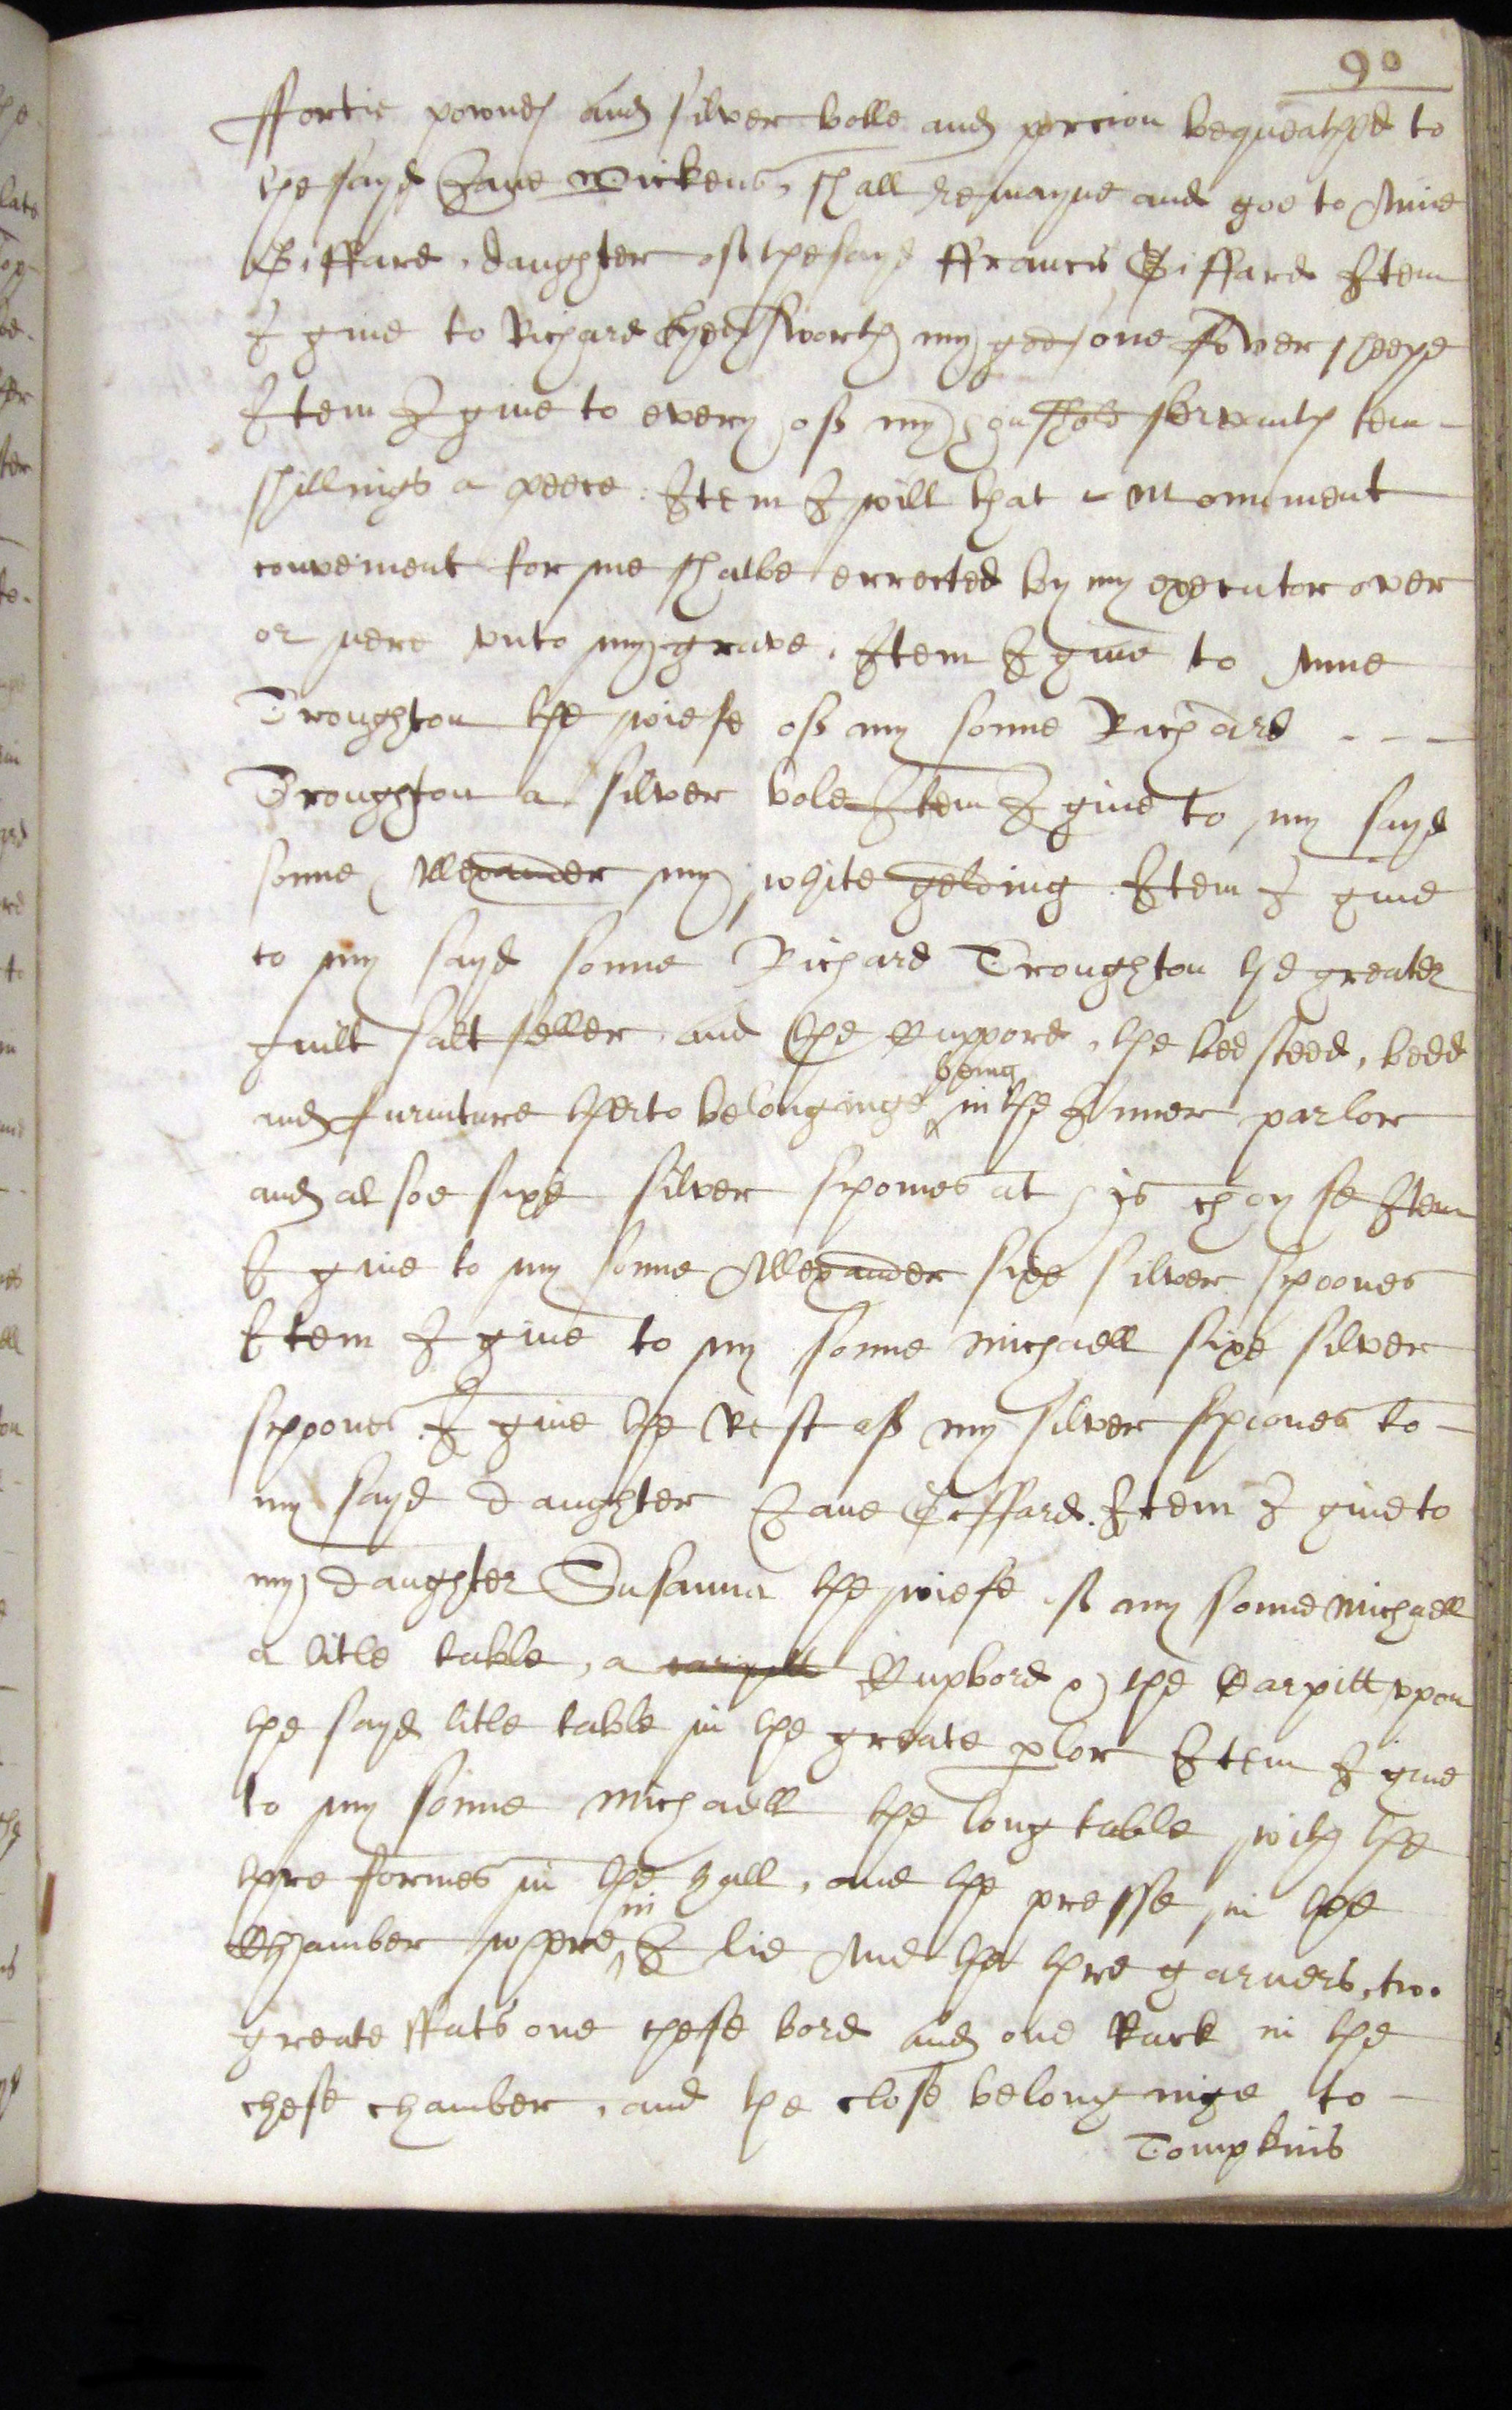 90
ffortie pownds and silver bolle and porcion bequeathed to
the sayd Jane Wickens, shall remayne and goe to Anne
Giffard, daughter of the sayd ffrancis Giffard Item
I give to Richard my godsone fower sheepe
Item I give to every of my houshold servants tenn
shillings a peece. Item I will that a Moniment
convenient for me shalbe errected by my executor over
or nere vnto my grave. Item I give to Anne
Troughton the wiefe of my sonne Richard - - -
Troughton a silver bole Item I give to my sayd
sonne Allexander my white gelding. Item I give
to my sayd sonne Richard Troughton the greater
guilt salt seller, and the Cuppord, the bed steed, bedd
and furniture therto belonginge being in the Inner parlor
and al soe sixe silver spoones at his choyse Item
I give to my sonne Allexander sixe silver spoones
Item I give to my sonne Michaell sixe silver
spoones. I give the Rest of my silver spoones to
my sayd daughter Jane Gifffard. Item I give to
my daughter Susanna the wiefe of my sonne Michaell
a litle table, a carpitt Cupbord & the Carpitt vpon
the sayd litle table in the greate plor Item I give
to my sonne Michaell the long table with the
thre formes in the hall, and the presse in the
Chamber where in I lie And the thre garners, two
greate ffats one chese bord and one Rack in the
chese chamber, and the close belonginge to
Tompkins